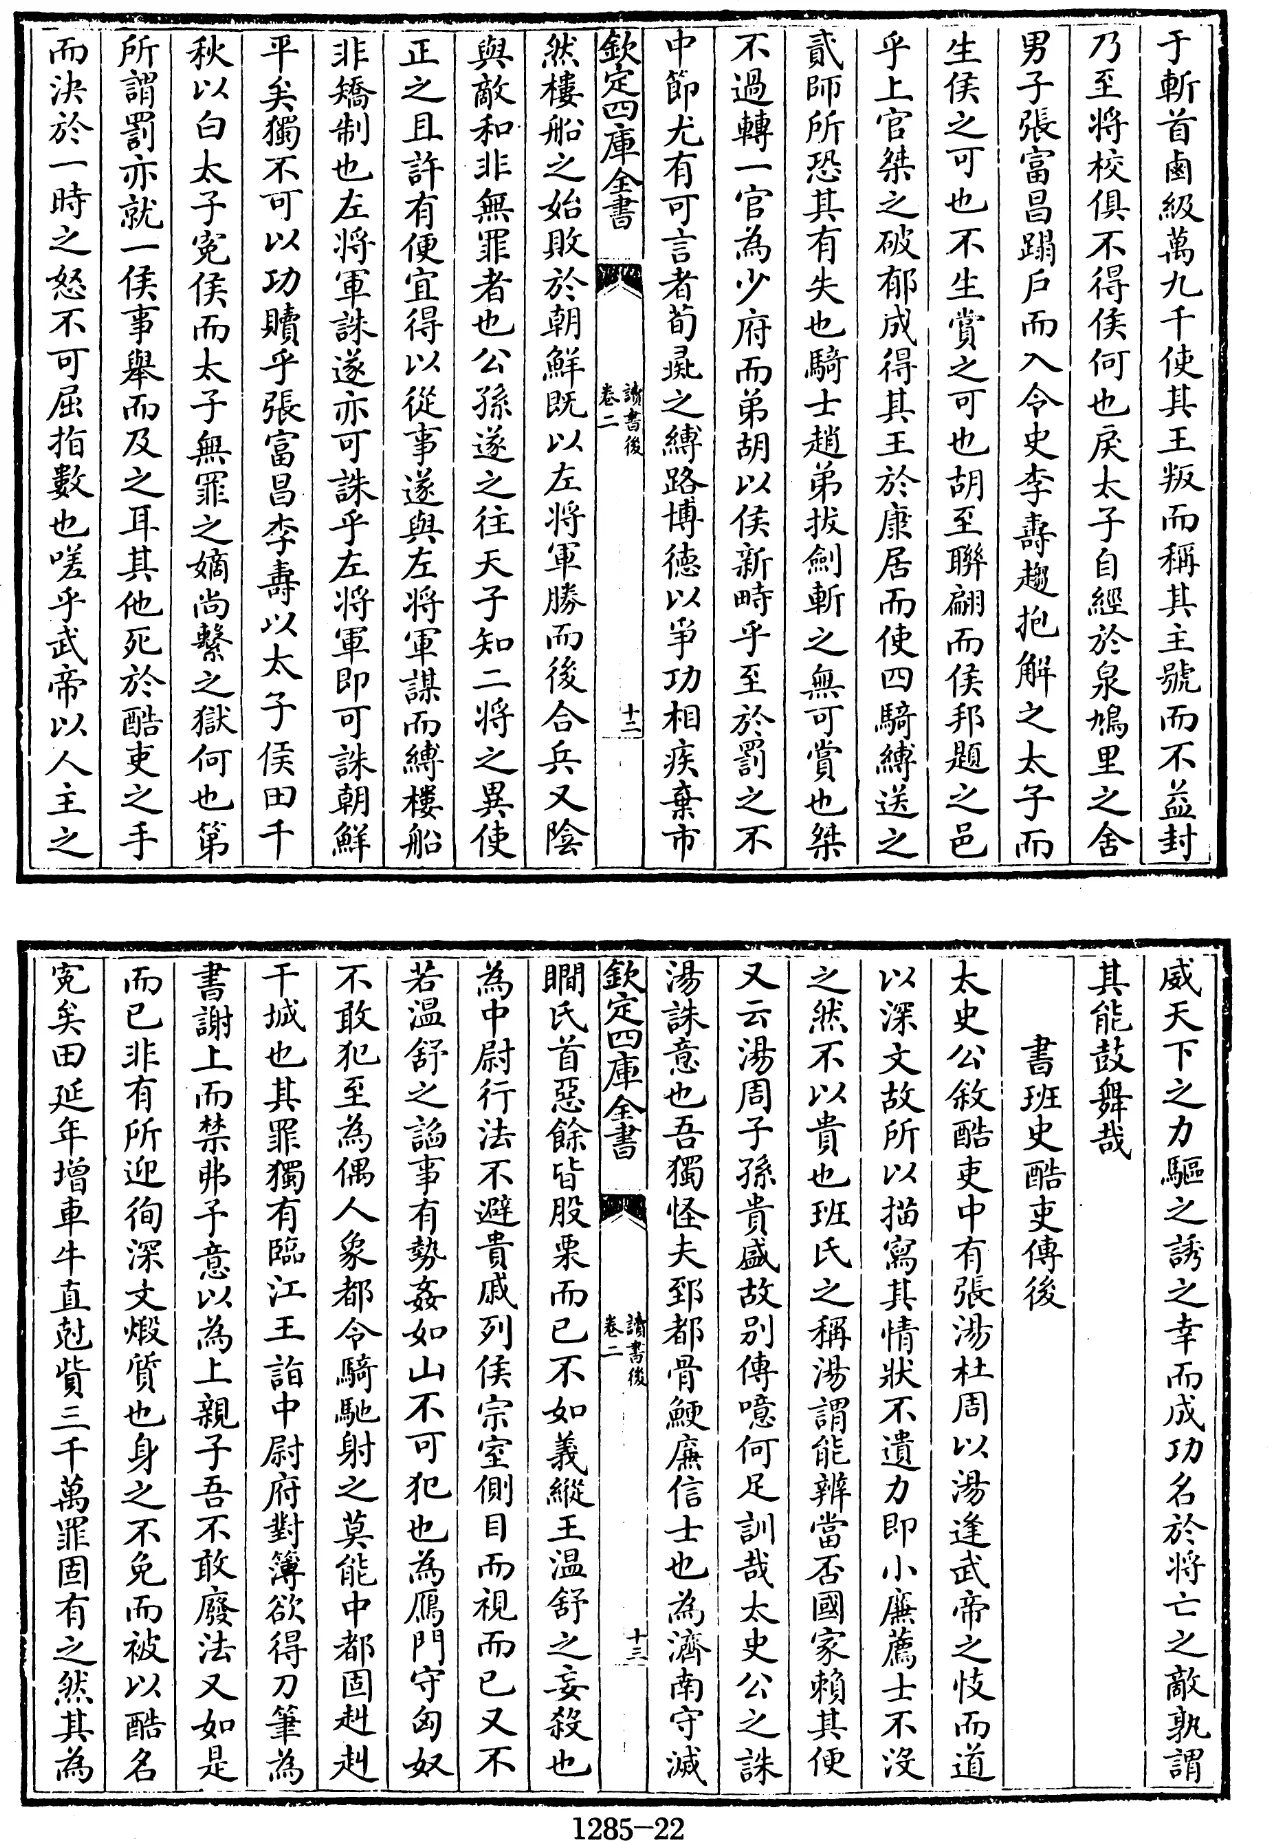 于斬首鹵級萬九千使其王叛而稱其主號而不益封
乃至將校俱不得侯何也戾太子自經於泉鳩里之舍
男子張富昌蹋戶而入令史李壽趨抱解之太子而
生侯之可也不生賞之可也胡至聯翩而侯邦題之邑
乎上官桀之破郁成得其王於康居而使四騎縛送之
貳師所恐其有失也騎士趙弟拔劍斬之無可賞也桀
不過轉一官為少府而弟胡以侯新畤乎至於罰之不
中節尤有可言者荀彘之縛路博德以爭功相疾棄市
欽定四庫全書
讀書後
卷二
十二
然樓船之始敗於朝鮮既以左將軍勝而後合兵又陰
與敵和非無罪者也公孫遂之往天子知二將之異使
正之且許有便宜得以從事遂與左將軍謀而縛樓船
非矯制也左將軍誅遂亦可誅乎左將軍即可誅朝鮮
平矣獨不可以功贖乎張富昌李壽以太子侯田千
秋以白太子寃侯而太子無罪之嫡尚繫之獄何也第
所謂罰亦就一侯事舉而及之耳其他死於酷吏之手
而決於一時之怒不可屈指數也嗟乎武帝以人主之
威天下之力驅之誘之幸而成功名於將亡之敵孰謂
其能鼓舞哉
書班史酷吏傳後
太史公敘酷吏中有張湯杜周以湯逢武帝之忮而道
以深文故所以描寫其情狀不遺力即小廉薦士不沒
之然不以貴也班氏之稱湯謂能辨當否國家賴其便
又云湯周子孫貴盛故别傳噫何足訓哉太史公之誅
湯誅意也吾獨怪夫郅都骨鯁廉信士也為濟南守滅
欽定四庫全書
讀書後
卷二
十三
瞷氏首惡餘皆股栗而已不如義縱王温舒之妄殺也
為中尉行法不避貴戚列侯宗室側目而視而已又不
若温舒之諂事有勢姦如山不可犯也為鴈門守匈奴
不敢犯至為偶人象都令騎馳射之莫能中都固赳赳
干城也其罪獨有臨江王詣中尉府對簿欲得刀筆為
書謝上而禁弗予意以為上親子吾不敢廢法又如是
而已非有所迎徇深文煅質也身之不免而被以酷名
寃矣田延年增車牛直尅貲三千萬罪固有之然其為
1285—22